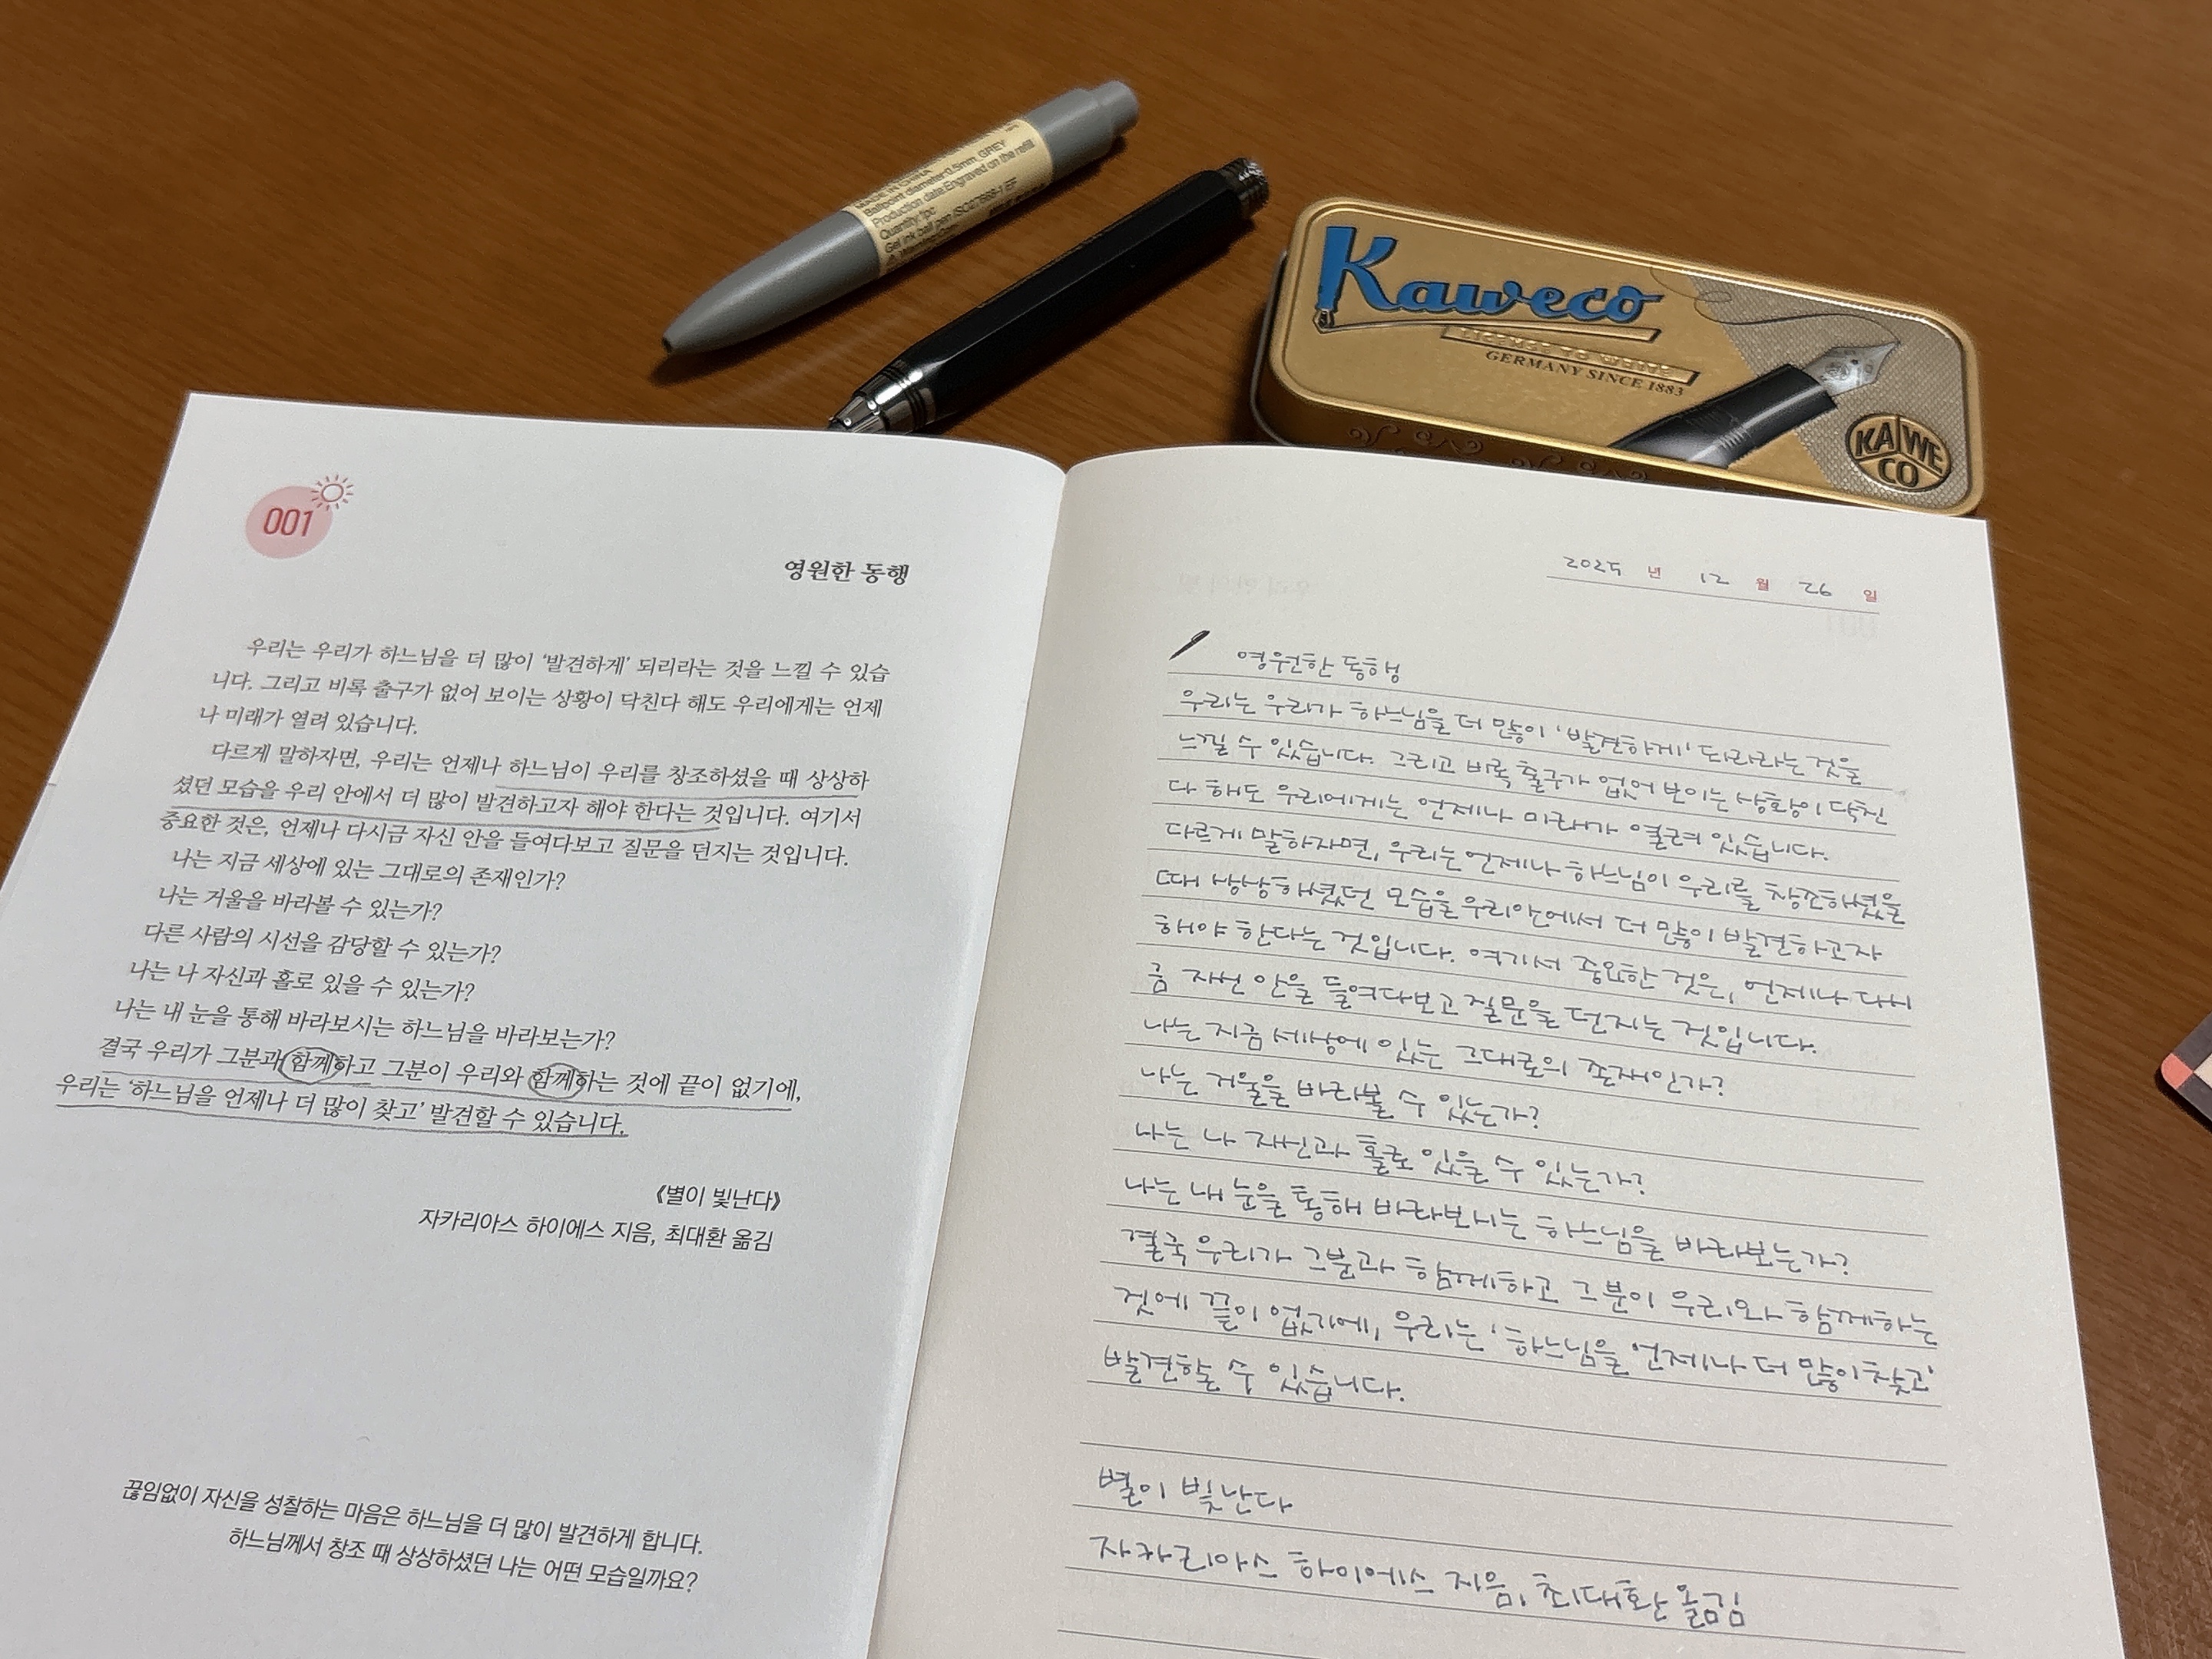 Ballpoint diameter:0.5mm, GREY
Production date:Engraved on the refill
Quantity:1pc
Gel ink ball pen
Kaweco
LICENSE TO WRITE
GERMANY SINCE 1883
KAWECO
001
영원한 동행
우리는 우리가 하느님을 더 많이 ‘발견하게’ 되리라는 것을 느낄 수 있습
니다. 그리고 비록 출구가 없어 보이는 상황이 닥친다 해도 우리에게는 언제
나 미래가 열려 있습니다.
다르게 말하자면, 우리는 언제나 하느님이 우리를 창조하셨을 때 상상하
셨던 모습을 우리 안에서 더 많이 발견하고자 해야 한다는 것입니다. 여기서
중요한 것은, 언제나 다시금 자신 안을 들여다보고 질문을 던지는 것입니다.
나는 지금 세상에 있는 그대로의 존재인가?
나는 거울을 바라볼 수 있는가?
다른 사람의 시선을 감당할 수 있는가?
나는 나 자신과 홀로 있을 수 있는가?
나는 내 눈을 통해 바라보시는 하느님을 바라보는가?
결국 우리가 그분과 함께하고 그분이 우리와 함께하는 것에 끝이 없기에,
우리는 ‘하느님을 언제나 더 많이 찾고’ 발견할 수 있습니다.
《별이 빛난다》
자카리아스 하이에스 지음, 최대환 옮김
끊임없이 자신을 성찰하는 마음은 하느님을 더 많이 발견하게 합니다.
하느님께서 창조 때 상상하셨던 나는 어떤 모습일까요?
2025 년 12 월 26 일
영원한 동행
우리는 우리가 하느님을 더 많이 ‘발견하게’ 되리라는 것을
느낄 수 있습니다. 그리고 비록 출구가 없어 보이는 상황이 닥친
다 해도 우리에게는 언제나 미래가 열려 있습니다.
다르게 말하자면, 우리는 언제나 하느님이 우리를 창조하셨을
때 상상하셨던 모습을 우리 안에서 더 많이 발견하고자
해야 한다는 것입니다. 여기서 중요한 것은, 언제나 다시
금 자신 안을 들여다보고 질문을 던지는 것입니다.
나는 지금 세상에 있는 그대로의 존재인가?
나는 거울을 바라볼 수 있는가?
나는 나 자신과 홀로 있을 수 있는가?
나는 내 눈을 통해 바라보시는 하느님을 바라보는가?
결국 우리가 그분과 함께하고 그분이 우리와 함께하는
것에 끝이 없기에, 우리는 ‘하느님을 언제나 더 많이 찾고’
발견할 수 있습니다.
별이 빛난다
자카리아스 하이에스 지음, 최대환 옮김